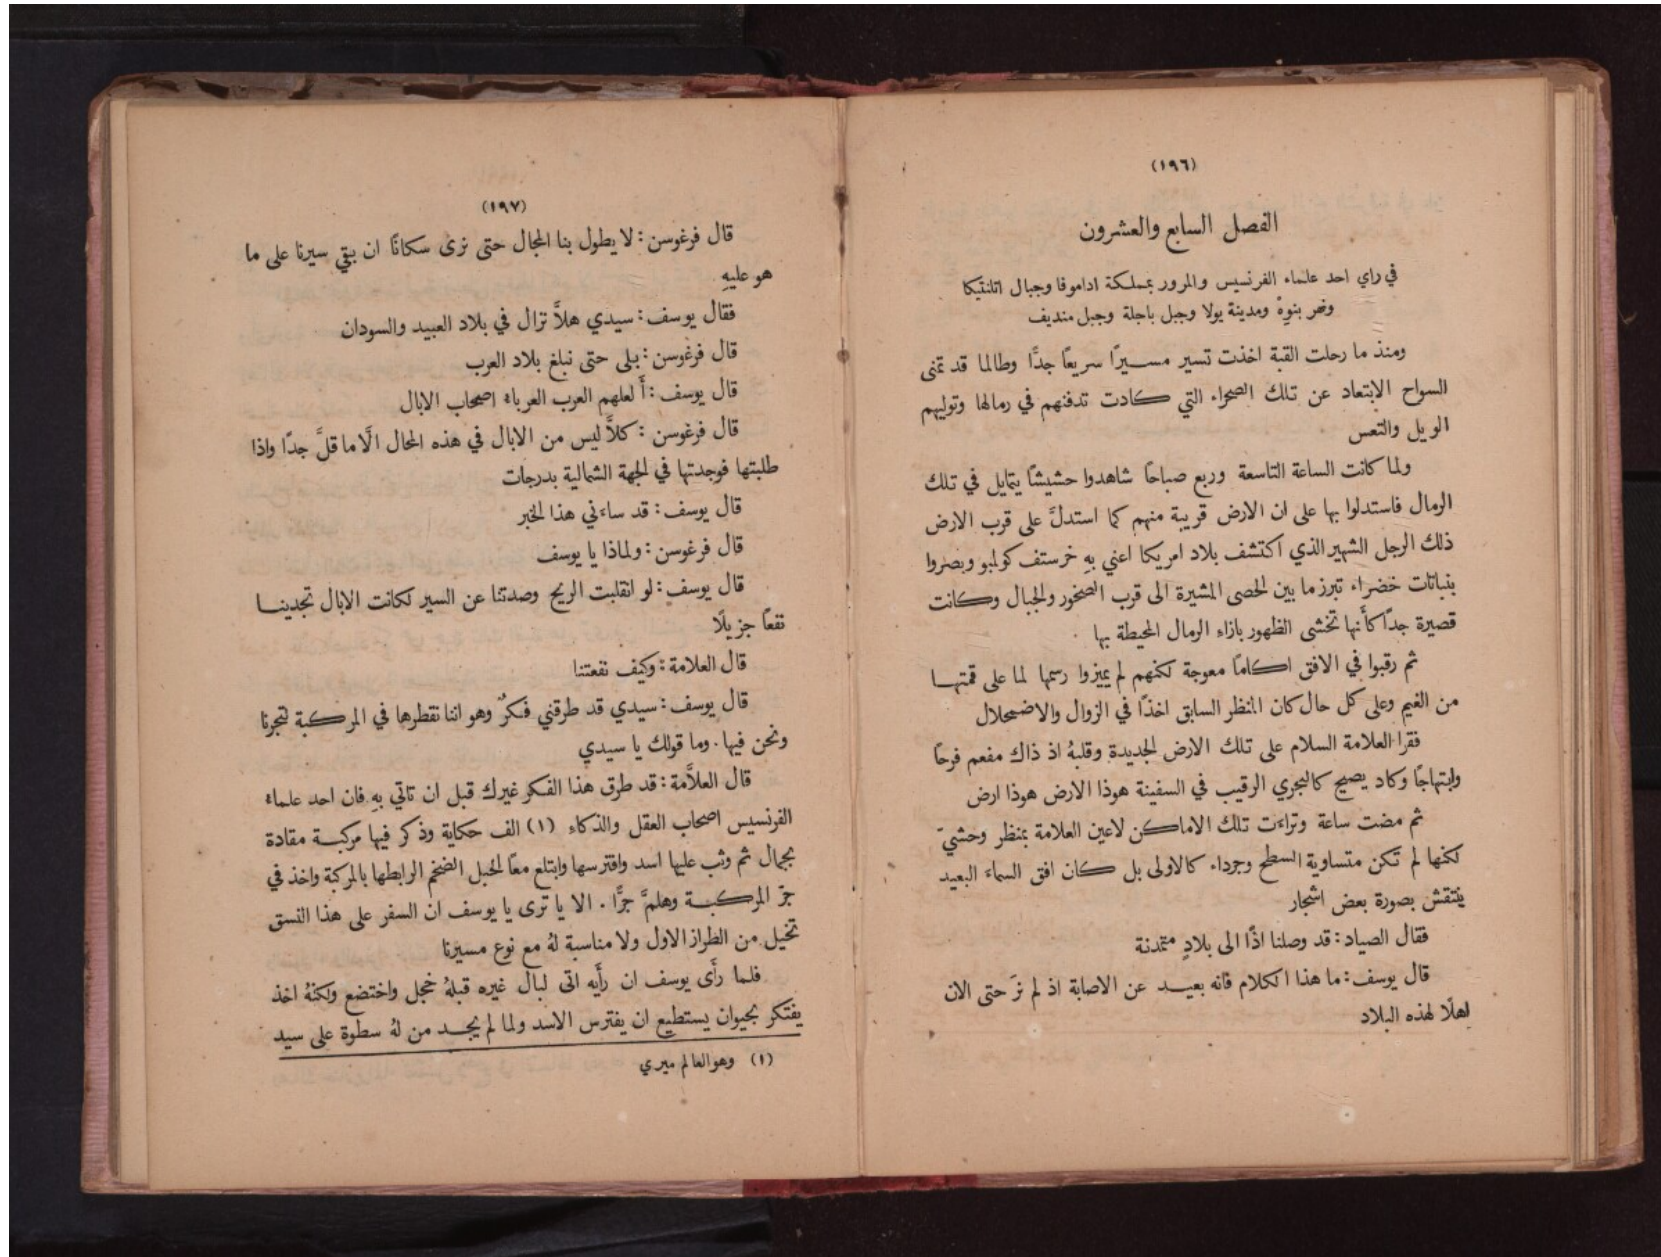 (١٩٦)
الفصل السابع والعشرون
في راي احد علماء الفرنسيس والمرور بمملكة اداموفا وجبال اتلنتيكا
ونهر بنوه ومدينة يولا وجبل باجلة وجبل منديف
ومنذ ما رحلت القبة اخذت تسير مسيرًا سريعًا جدًّا وطالما قد تمنى
السواح الابتعاد عن تلك الصحراء التي كادت تدفنهم في رمالها وتوليهم
الويل والتعس
ولما كانت الساعة التاسعة وربع صباحًا شاهدوا حشيشًا يتمايل في تلك
الرمال فاستدلوا بها على ان الارض قريبة منهم كما استدلَّ على قرب الارض
ذلك الرجل الشهير الذي اكتشف بلاد امريكا اعني بهِ خرستف كولمبو وبصروا
بنباتات خضراء تبرز ما بين الحصى المشيرة الى قرب الصخور والجبال وكانت
قصيرة جدًّا كأنها تخشى الظهور بازاء الرمال المحيطة بها
ثم رقبوا في الافق اكامًا معوجة لكنهم لم يميزوا رسمها لما على قمتها
من الغيم وعلى كل حال كان المنظر السابق اخذًا في الزوال والاضمحلال
فقرا العلامة السلام على تلك الارض الجديدة وقلبهُ اذ ذاك مفعم فرحًا
وابتهاجًا وكاد يصيح كالبحري الرقيب في السفينة هوذا الارض هوذا ارض
ثم مضت ساعة وتراءت تلك الاماكن لاعين العلامة بمنظر وحشيّ
لكنها لم تكن متساوية السطح وجرداء كالاولى بل كان افق السماء البعيد
ينتقش بصورة بعض اشجار
فقال الصياد: قد وصلنا اذًا الى بلادٍ متمدنة
قال يوسف: ما هذا الكلام فانه بعيد عن الاصابة اذ لم نرَ حتى الان
اهلًا لهذه البلاد
(١٩٧)
قال فرغوسن: لا يطول بنا المجال حتى نرى سكانًا ان بقي سيرنا على ما
هو عليهِ
فقال يوسف: سيدي هلاَّ تزال في بلاد العبيد والسودان
قال فرغوسن: بلى حتى نبلغ بلاد العرب
قال يوسف: أَلعلهم العرب العرباء اصحاب الابال
قال فرغوسن: كلاَّ ليس من الابال في هذه المحال الَّا ما قلَّ جدًا واذا
طلبتها فوجدتها في الجهة الشمالية بدرجات
قال يوسف: قد ساءني هذا الخبر
قال فرغوسن: ولماذا يا يوسف
قال يوسف: لو انقلبت الريح وصدتنا عن السير لكانت الابال تجدينا
نفعًا جزيلًا
قال العلامة: وكيف نفعتنا
قال يوسف: سيدي قد طرقني فكرٌ وهو اننا نقطرها في المركبة لتجرنا
ونحن فيها. وما قولك يا سيدي
قال العلاَّمة: قد طرق هذا الفكر غيرك قبل ان تاتي بهِ فان احد علماء
الفرنسيس اصحاب العقل والذكاء (١) الف حكاية وذكر فيها مركبة مقادة
بجمال ثم وثب عليها اسد وافترسها وابتلع معًا الحبل الضخم الرابطها بالمركبة واخذ في
جرّ المركبة وهلمَّ جرًّا. الا يا ترى يا يوسف ان السفر على هذا النسق
تخيل من الطراز الاول ولا مناسبة لهُ مع نوع مسيرنا
فلما رأَى يوسف ان رأيه اتى لبال غيره قبلهُ خجل واختضع ولكنهُ اخذ
يفتكر بحيوان يستطيع ان يفترس الاسد ولما لم يجد من لهُ سطوة على سيد
(١) وهو العالم ميري